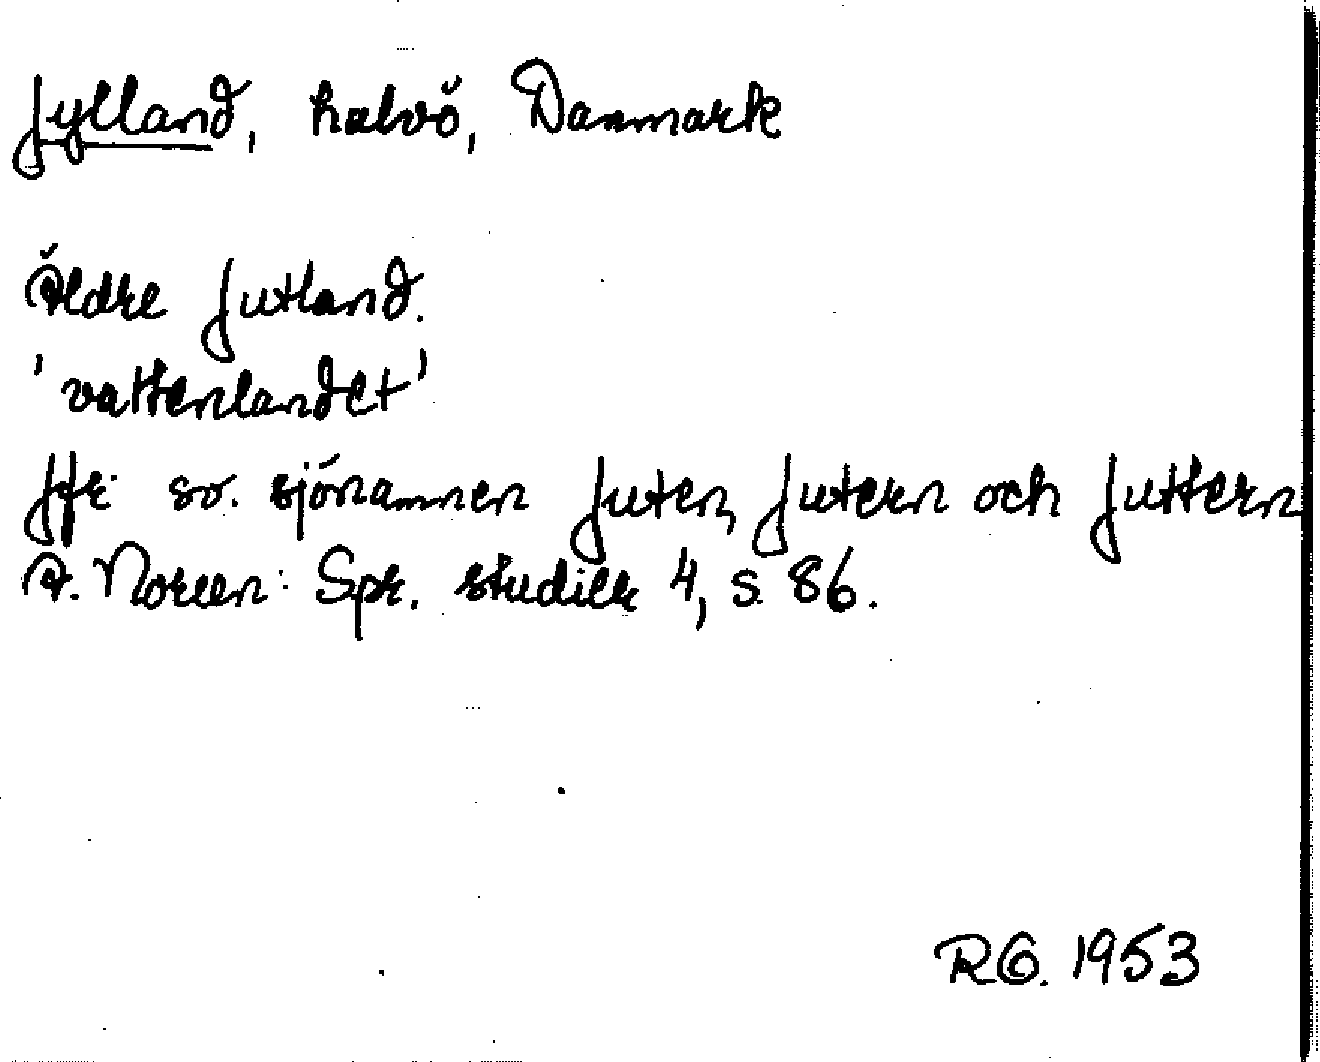 Jylland, halvö, Danmark
Äldre Jutland.
'vattenlandet'
Jfr sv. sjönamnen Juten, Jutern och Juttern
A. Noreen: Spr. studier 4, s. 86.
RG. 1953